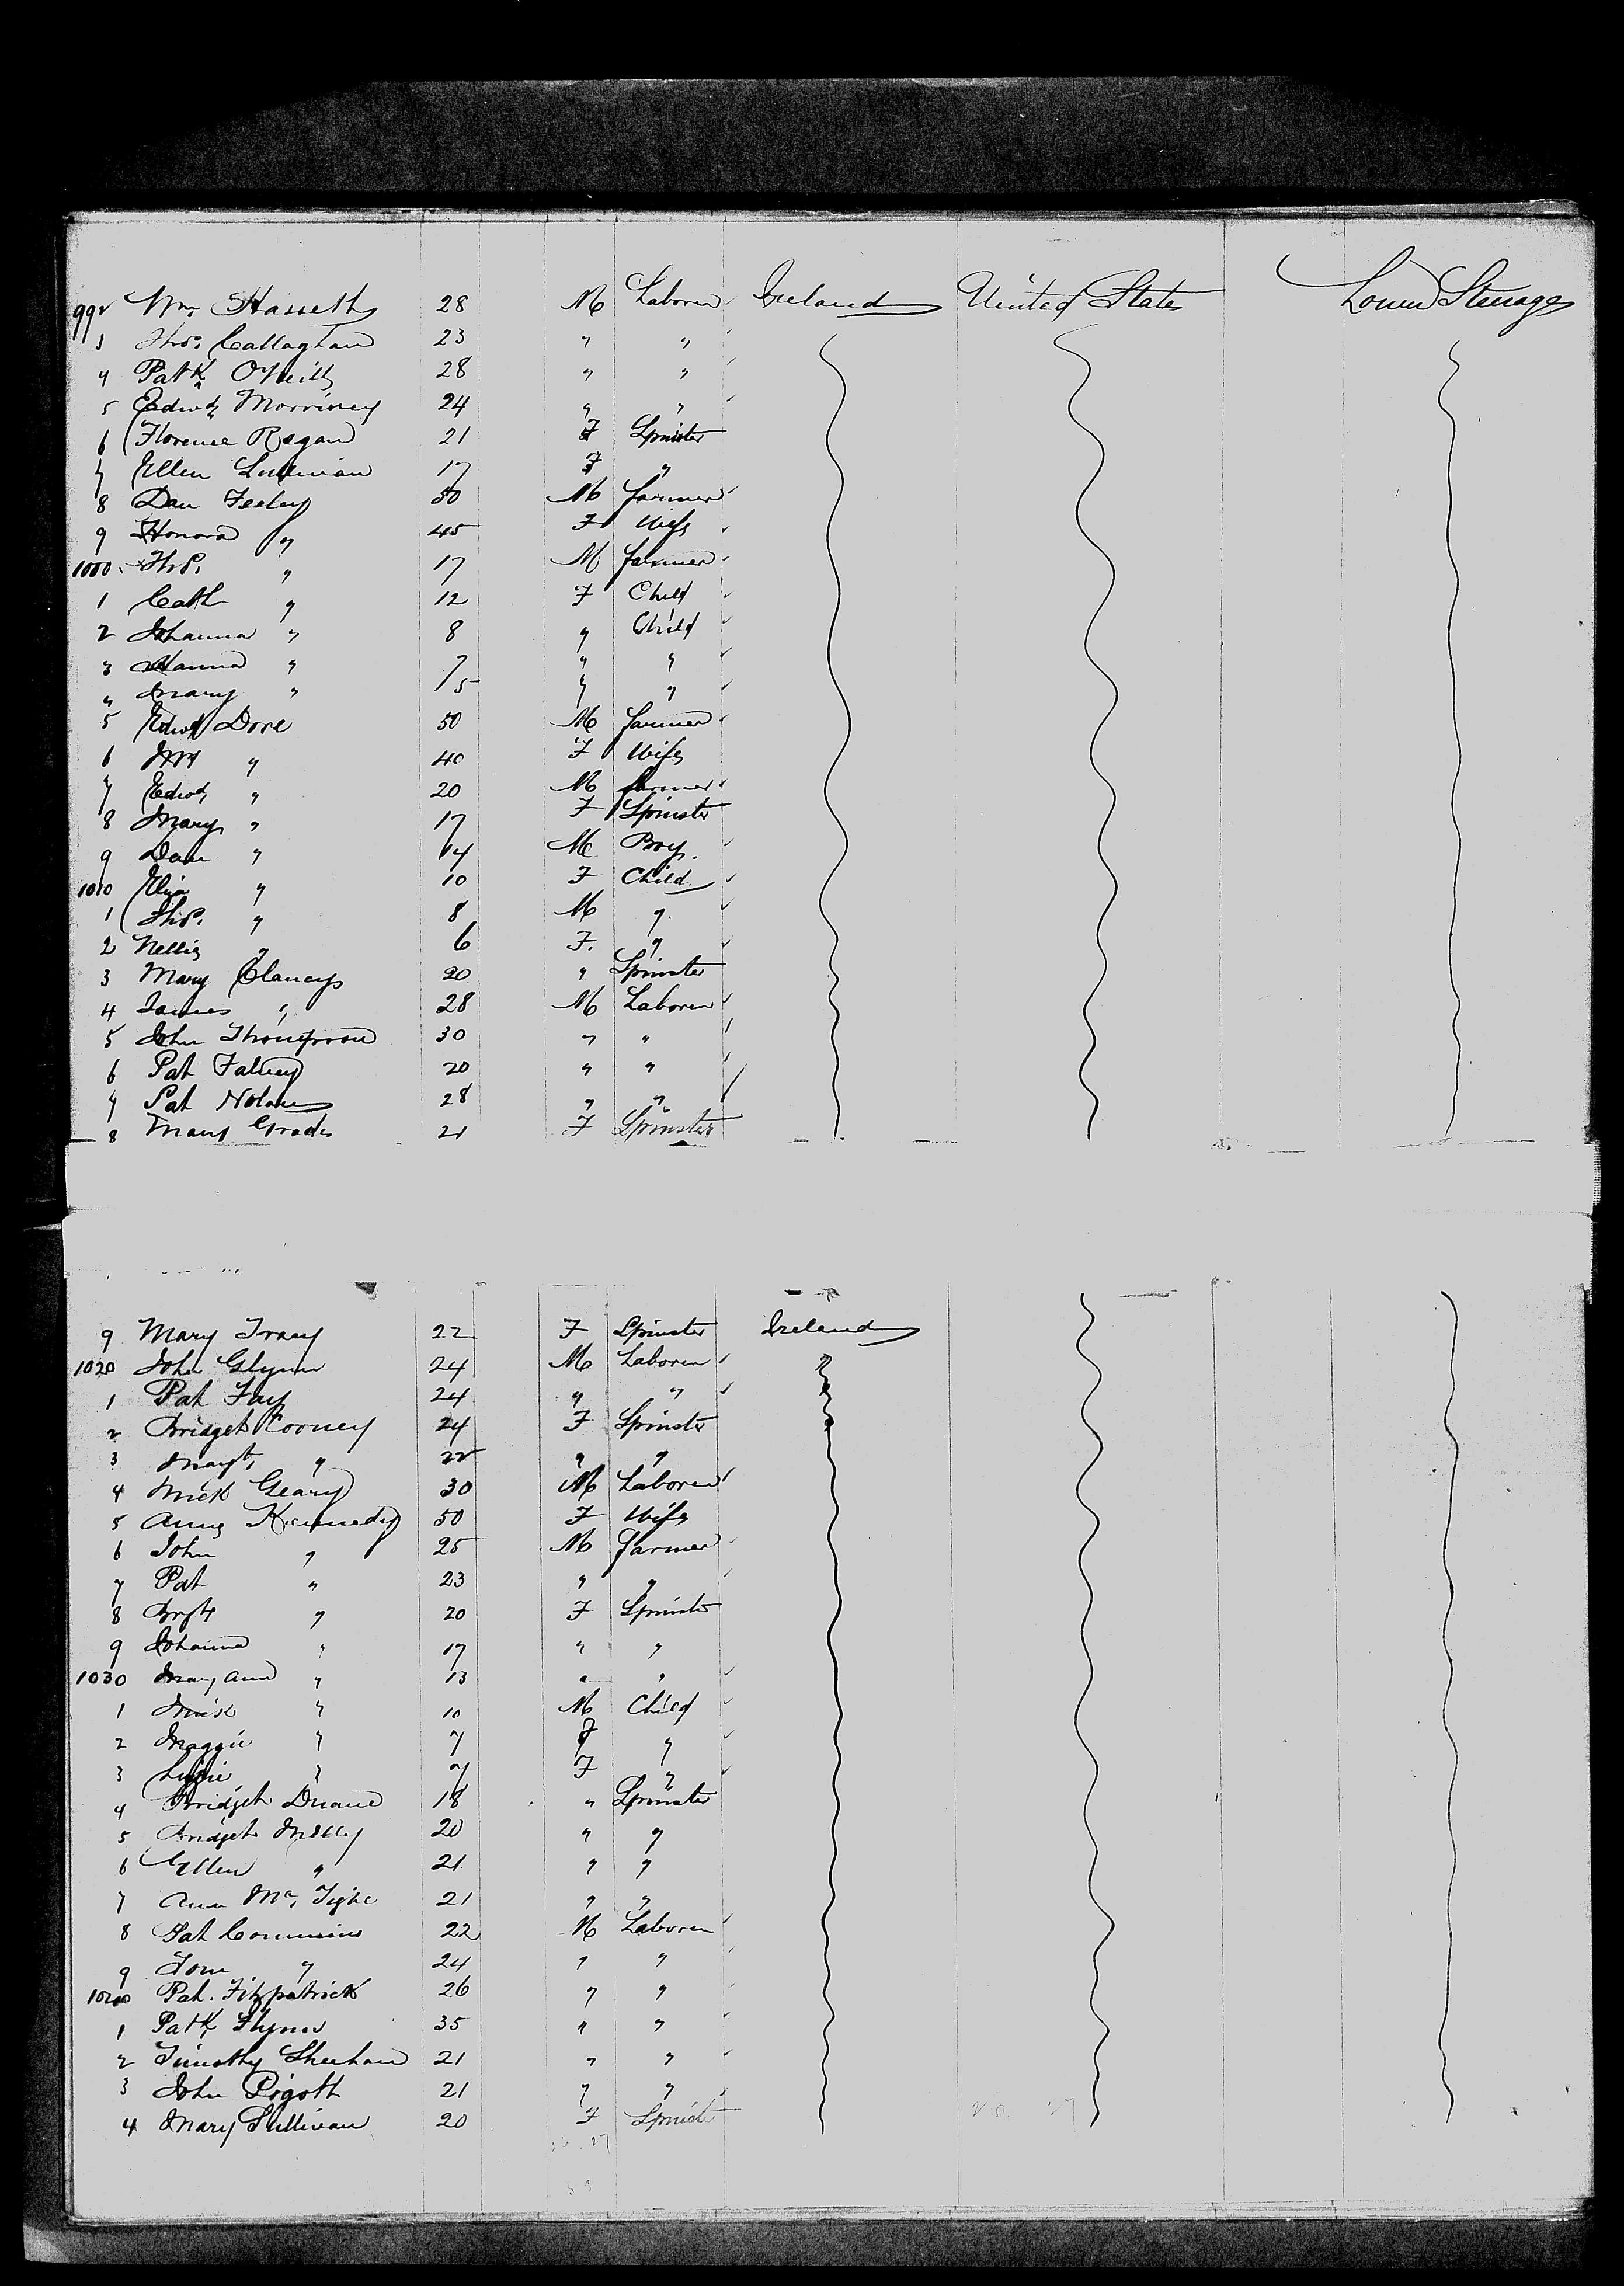 992 Wm Hassett 28 M Laborer Ireland United States Lower Steerage
3 Thos. Callaghan 23 " "
4 Patk O'Neill 28 " "
5 Edwd Morrissey 24 " "
6 Florence Regan 21 F Spinster
7 Ellen Sullivan 17 F "
8 Dan Feeley 50 M farmer
9 Honora " 45 F Wife
1000 Thos. " 17 M farmer
1 Cath " 12 F Child
2 Johanna " 8 " Child
3 Hanna " 7 " "
4 Mary " 5 " "
5 Edwd Dore 50 M farmer
6 " 40 F Wife
7 Edwd " 20 M farmer
8 Mary " 17 F Spinster
9 Dan " 14 M Boy
1010 Eliza " 10 F Child
1 Thos. " 8 M "
2 Nellie " 6 F. "
3 Mary Clancy 20 " Spinster
4 James " 28 M Laborer
5 John Thompson 30 " "
6 Pat Falvey 20 " "
7 Pat Nolan 28 " "
8 Mary Grady 21 F Spinster
9 Mary Tracy 22 F Spinster Ireland
1020 John Glynn 24 M Laborer "
1 Pat Fay 24 " "
2 Bridget Rooney 24 F Spinster
3 Magt. " 22 " "
4 Mick Geary 30 M Laborer
5 Anne Kennedy 50 F Wife
6 John " 25 M farmer
7 Pat " 23 " "
8 Brgt " 20 F Spinster
9 Johanna " 17 " "
1030 Mary Ann " 13 " "
1 Mick " 10 M Child
2 Maggie " 7 F "
3 Lizzie " 7 F "
4 Bridget Duane 18 " Spinster
5 Bridget 20 " "
6 Ellen " 21 " "
7 Ann Mc Tighe 21 " "
8 Pat Commins 22 M Laborer
9 Tom " 24 " "
1040 Pat. Fitzpatrick 26 " "
1 Patk Flynn 35 " "
2 Timothy Sheehan 21 " "
3 John Pigott 21 " "
4 Mary Sullivan 20 F Spinster